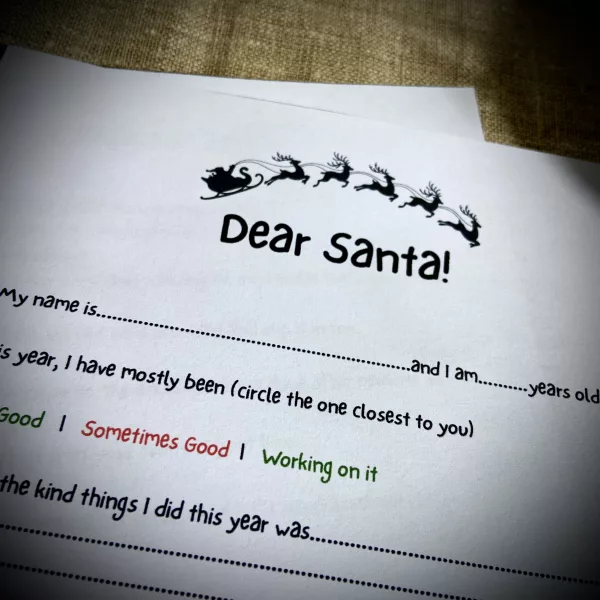 Dear Santa!
My name is..........................................................and I am..........years old
is year, I have mostly been (circle the one closest to you)
Good | Sometimes Good | Working on it
the kind things I did this year was..................................................